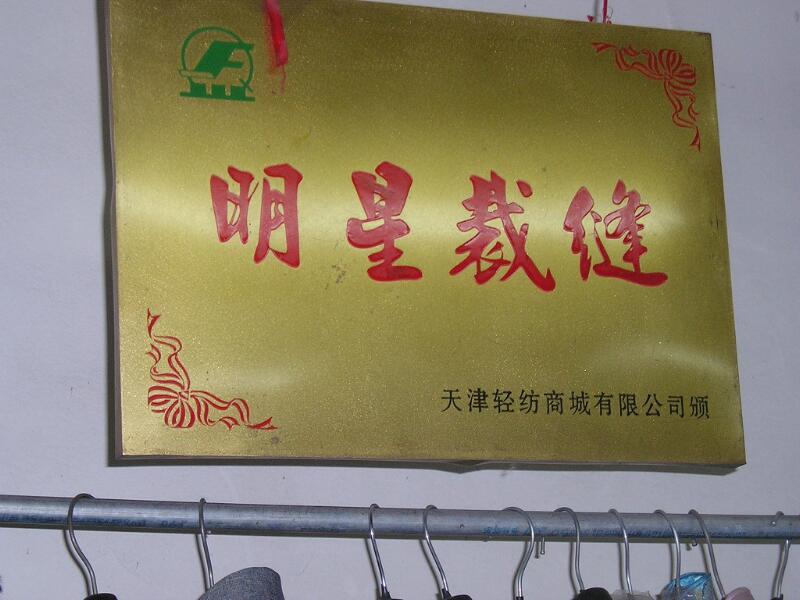 明星裁缝
天津轻纺商城有限公司颁